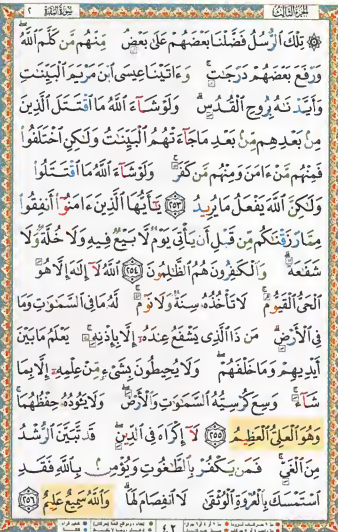 الجزء الثالث سورة البقرة ٢
۞ تِلْكَ ٱلرُّسُلُ فَضَّلْنَا بَعْضَهُمْ عَلَىٰ بَعْضٍ ۘ مِّنْهُم مَّن كَلَّمَ ٱللَّهُ ۖ
وَرَفَعَ بَعْضَهُمْ دَرَجَٰتٍ ۚ وَءَاتَيْنَا عِيسَى ٱبْنَ مَرْيَمَ ٱلْبَيِّنَٰتِ
وَأَيَّدْنَٰهُ بِرُوحِ ٱلْقُدُسِ ۗ وَلَوْ شَآءَ ٱللَّهُ مَا ٱقْتَتَلَ ٱلَّذِينَ
مِنۢ بَعْدِهِم مِّنۢ بَعْدِ مَا جَآءَتْهُمُ ٱلْبَيِّنَٰتُ وَلَٰكِنِ ٱخْتَلَفُوا۟
فَمِنْهُم مَّنْ ءَامَنَ وَمِنْهُم مَّن كَفَرَ ۚ وَلَوْ شَآءَ ٱللَّهُ مَا ٱقْتَتَلُوا۟
وَلَٰكِنَّ ٱللَّهَ يَفْعَلُ مَا يُرِيدُ ٢٥٣ يَٰٓأَيُّهَا ٱلَّذِينَ ءَامَنُوٓا۟ أَنفِقُوا۟
مِمَّا رَزَقْنَٰكُم مِّن قَبْلِ أَن يَأْتِىَ يَوْمٌ لَّا بَيْعٌ فِيهِ وَلَا خُلَّةٌ وَلَا
شَفَٰعَةٌ ۗ وَٱلْكَٰفِرُونَ هُمُ ٱلظَّٰلِمُونَ ٢٥٤ ٱللَّهُ لَآ إِلَٰهَ إِلَّا هُوَ
ٱلْحَىُّ ٱلْقَيُّومُ ۚ لَا تَأْخُذُهُۥ سِنَةٌ وَلَا نَوْمٌ ۚ لَّهُۥ مَا فِى ٱلسَّمَٰوَٰتِ وَمَا
فِى ٱلْأَرْضِ ۗ مَن ذَا ٱلَّذِى يَشْفَعُ عِندَهُۥٓ إِلَّا بِإِذْنِهِۦ ۚ يَعْلَمُ مَا بَيْنَ
أَيْدِيهِمْ وَمَا خَلْفَهُمْ ۖ وَلَا يُحِيطُونَ بِشَىْءٍ مِّنْ عِلْمِهِۦٓ إِلَّا بِمَا
شَآءَ ۚ وَسِعَ كُرْسِيُّهُ ٱلسَّمَٰوَٰتِ وَٱلْأَرْضَ ۖ وَلَا يَـُٔودُهُۥ حِفْظُهُمَا ۚ
وَهُوَ ٱلْعَلِىُّ ٱلْعَظِيمُ ٢٥٥ لَآ إِكْرَاهَ فِى ٱلدِّينِ ۖ قَد تَّبَيَّنَ ٱلرُّشْدُ
مِنَ ٱلْغَىِّ ۚ فَمَن يَكْفُرْ بِٱلطَّٰغُوتِ وَيُؤْمِنۢ بِٱللَّهِ فَقَدِ
ٱسْتَمْسَكَ بِٱلْعُرْوَةِ ٱلْوُثْقَىٰ لَا ٱنفِصَامَ لَهَا ۗ وَٱللَّهُ سَمِيعٌ عَلِيمٌ ٢٥٦
٤٢